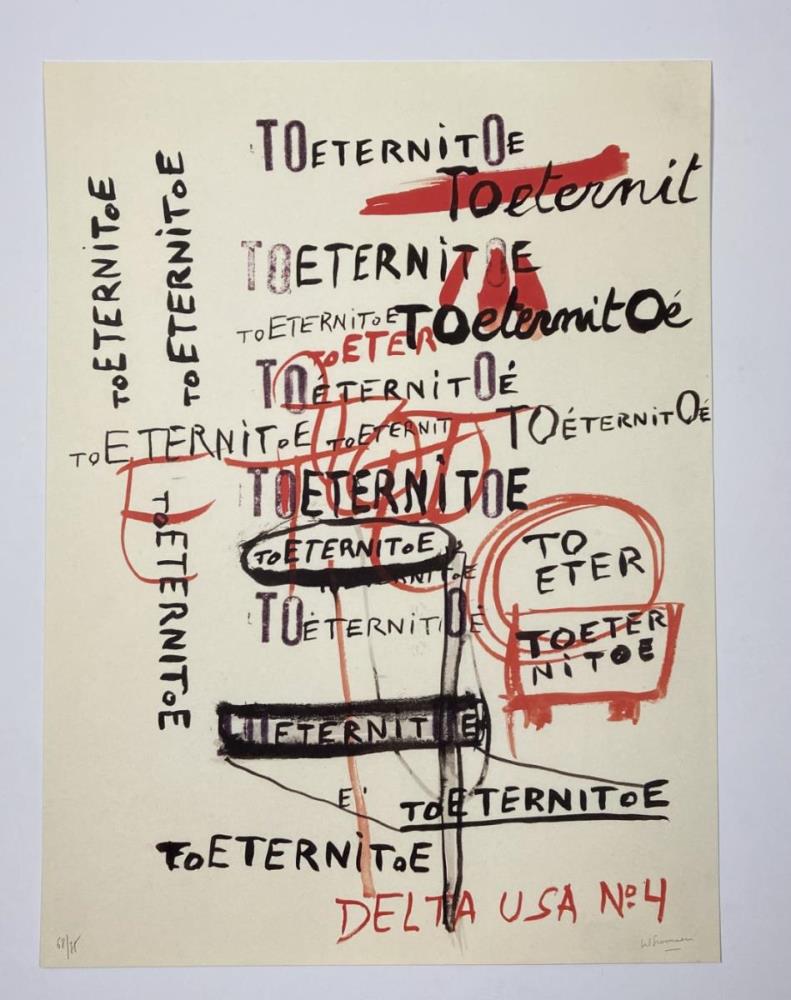 TOETERNiTOE
TOeternit
TOETERNiTOE
TOETERNiTOE
TOeternitOé
TOETER
TOÉTERNiTOÉ
TOETERNiTOE
TOETERNiT
TOÉTERNiTOÉ
TOETERNiTOE
TOETERNITOE
TOETERNITOE
TOETERNITOE
TOETERNiTOE
TO
ETER
TOÉTERNiTOÉ
TOETER
NiTOE
E'
TOETERNITOE
TOETERNiTOE
DELTA USA Nº4